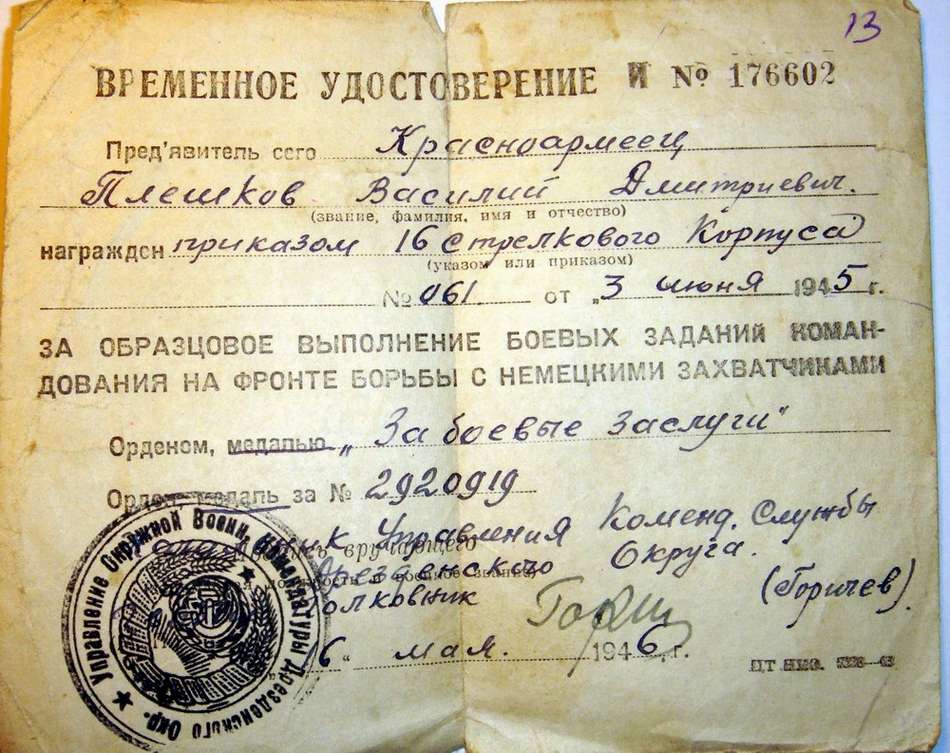 13
ВРЕМЕННОЕ УДОСТОВЕРЕНИЕ И № 176602
Пред'явитель сего Красноармеец
Плешков Василий Дмитриевич.
(звание, фамилия, имя и отчество)
награжден приказом 16 Стрелкового Корпуса
(указом или приказом)
№ 061. от „3 июня 1945 г.
ЗА ОБРАЗЦОВОЕ ВЫПОЛНЕНИЕ БОЕВЫХ ЗАДАНИЙ КОМАН-
ДОВАНИЯ НА ФРОНТЕ БОРЬБЫ С НЕМЕЦКИМИ ЗАХВАТЧИКАМИ
Орденом, медалью „За боевые заслуги"
Орден, медаль за № 2920919
Управления Коменд. Службы
вручающего
Дрезденского Округа.
и военное звание)
Полковник (Горичев).
„16" мая. 1946, г.
Управление Окружной Военн. Комендатуры Дрезденского Окр.